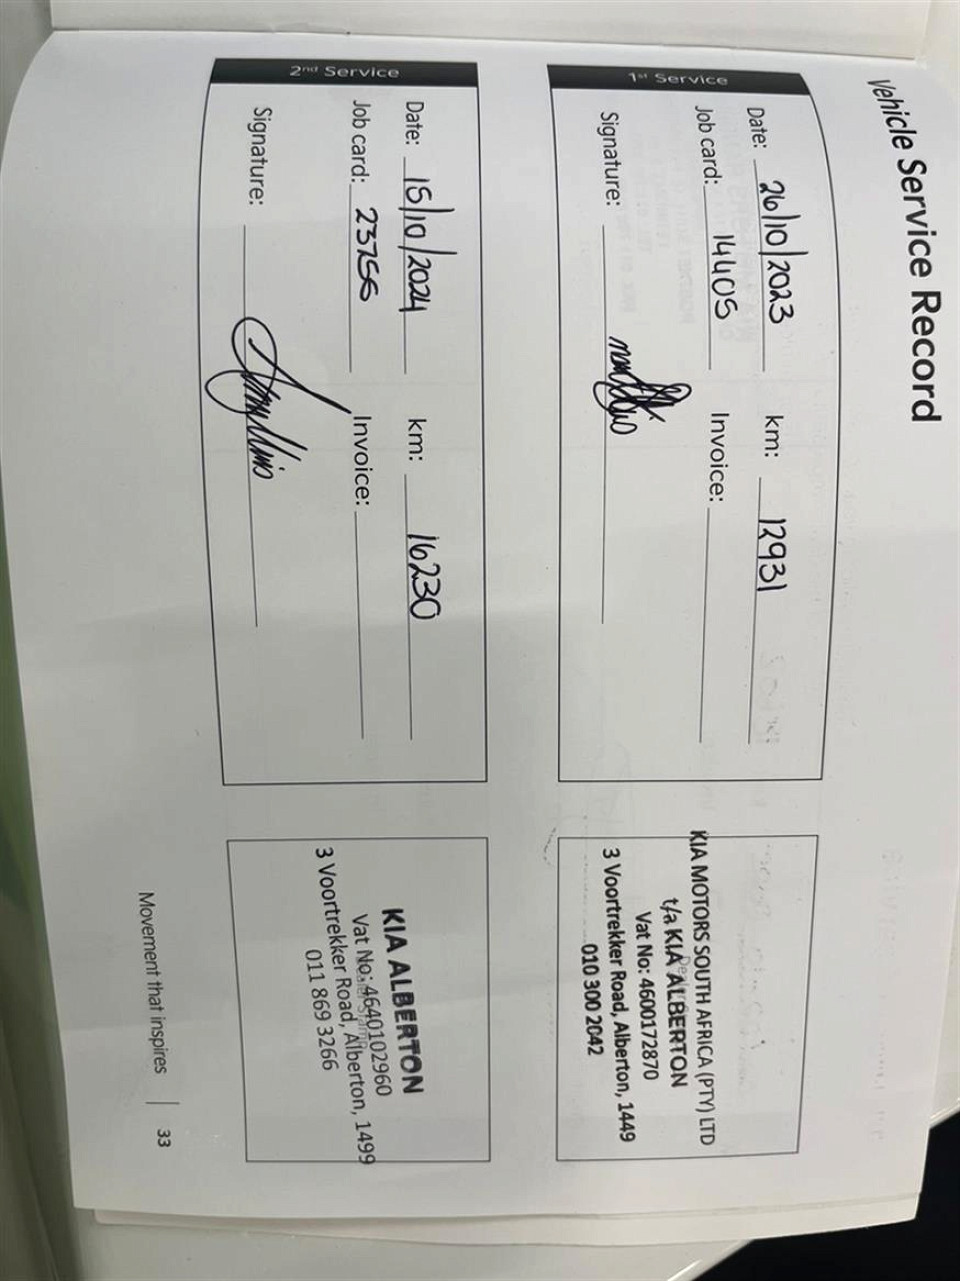 Vehicle Service Record
1st Service
Date: 26/10/2023 km: 12931
Job card: 14405 Invoice:
Signature:
KIA MOTORS SOUTH AFRICA (PTY) LTD
t/a KIA ALBERTON
Vat No: 4600172870
3 Voortrekker Road, Alberton, 1449
010 300 2042
2nd Service
Date: 15/10/2024 km: 16230
Job card: 23756 Invoice:
Signature:
KIA ALBERTON
Vat No: 4640102960
3 Voortrekker Road, Alberton, 1499
011 869 3266
Movement that inspires | 33